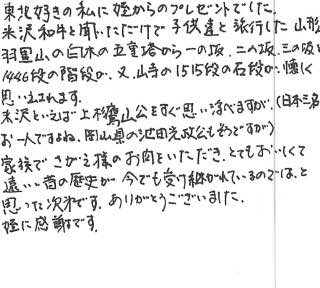 東北好きの私に姪からのプレゼントでした。
米沢和牛と聞いただけで子供達と旅行した山形
羽黒山の白木の五重塔から一の坂、二の坂、三の坂と
1446段の階段が、又、山寺の1515段の石段が、懐しく
思い出されます。
米沢といえば上杉鷹山公をすぐ思い浮べますが、(日本三名
お一人ですよね、岡山県の池田光政公もそうですが)
家族でさがえ様のお肉をいただき、とてもおいしくて
遠い昔の歴史が今でも受け継がれているのでは、と
思った次第です。ありがとうございました。
姪に感謝です。